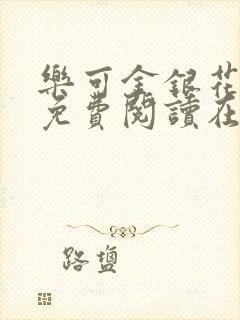 樂可金銀花
免費閱讀在
路鹽